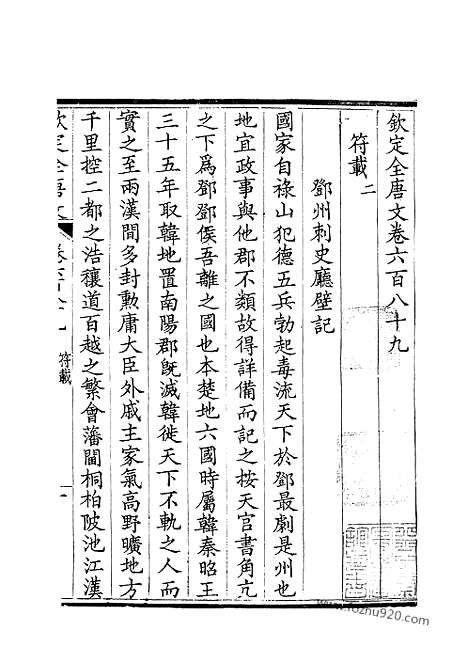 欽定全唐文卷六百八十九
符載二
鄧州刺史廳壁記
國家自祿山犯德五兵勃起毒流天下於鄧最劇是州也
地宜政事與他郡不類故得詳備而記之按天官書角亢
之下為鄧鄧侯吾離之國也本楚地六國時屬韓秦昭王
三十五年取韓地置南陽郡旣滅韓徙天下不軌之人而
實之至兩漢間多封勲庸大臣外戚主家氣高野曠地方
千里控二都之浩穰道百越之繁會藩閫桐柏陂池江漢
欽定全唐文
卷六百八十九
符載
一
www.fozhu920.com